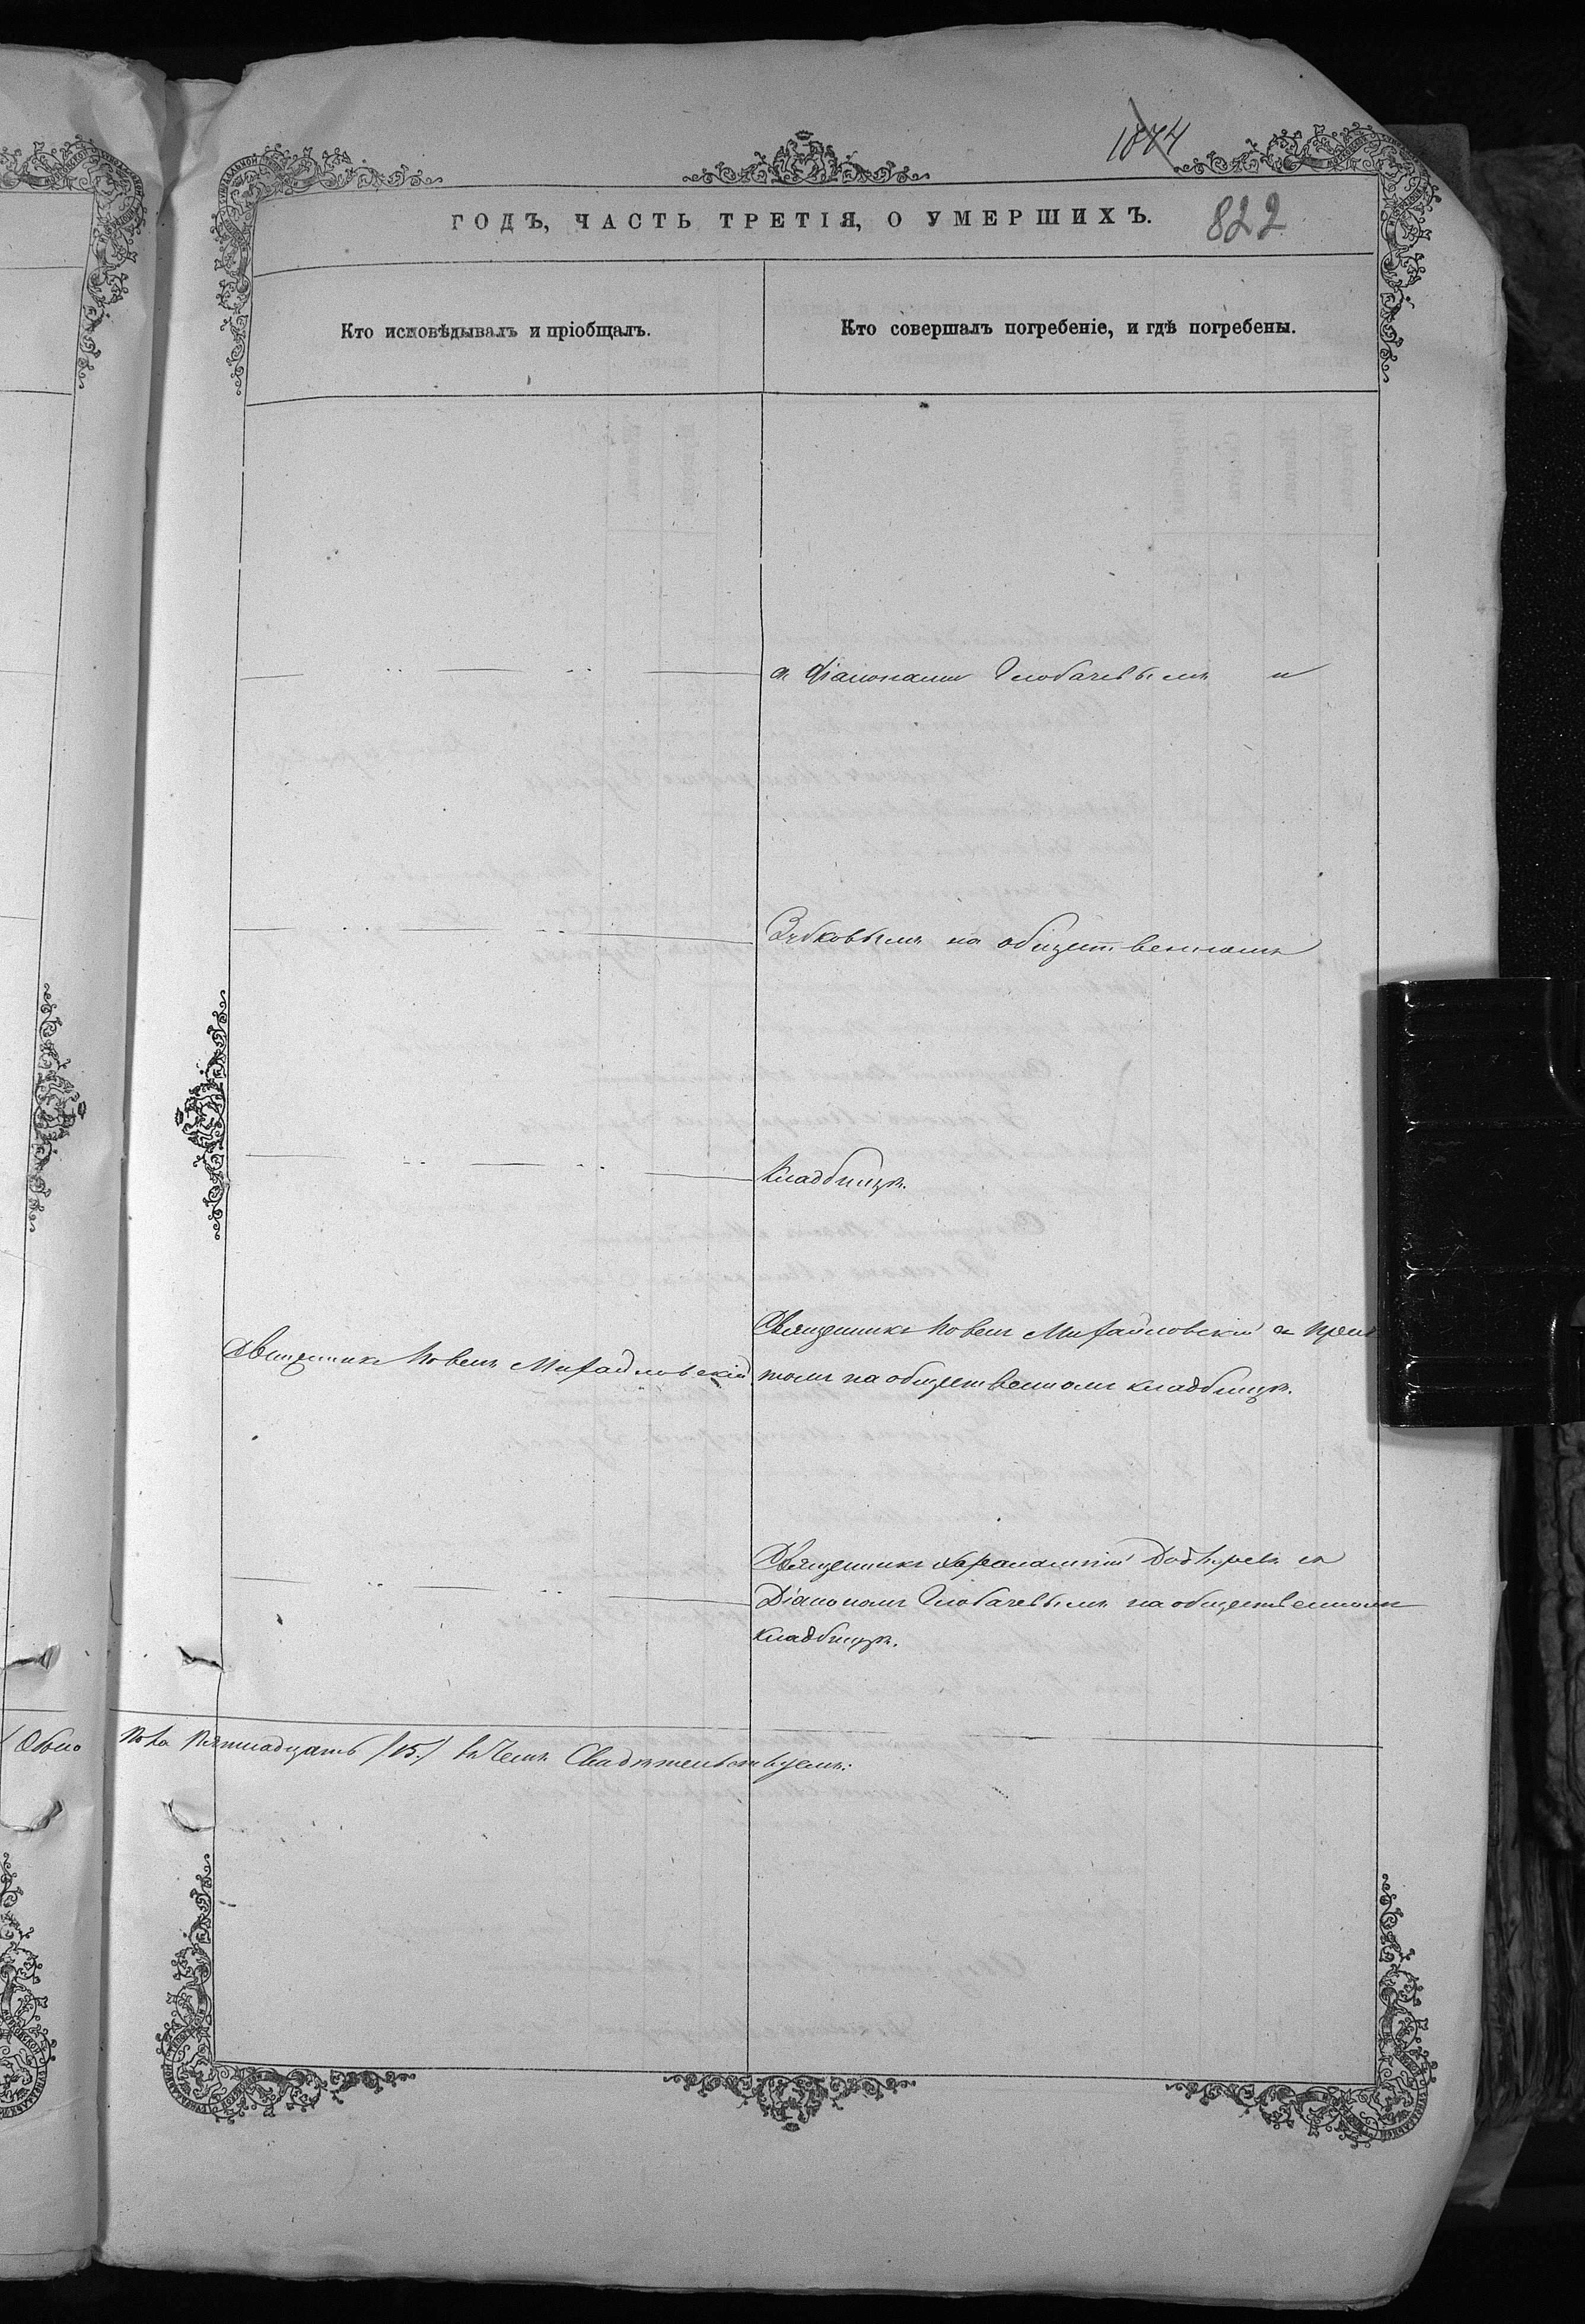 1874
ГОДЪ, ЧАСТЬ ТРЕТІЯ, О УМЕРШИХЪ. 822
Кто исповѣдывалъ и пріобщалъ.
Кто совершалъ погребеніе, и гдѣ погребены.
съ Діаконами Глобачевымъ и
Зубковымъ на общественномъ
кладбищѣ.
Священникъ Павелъ Михайловскій
Священникъ Павелъ Михайловскій съ прич
томъ на общественномъ кладбищѣ.
Священникъ съ
Діакономъ Глобачевымъ на общественномъ
кладбищѣ.
Обоего
пола пятнадцать /15./ въ чемъ Свидѣтельствуемъ: